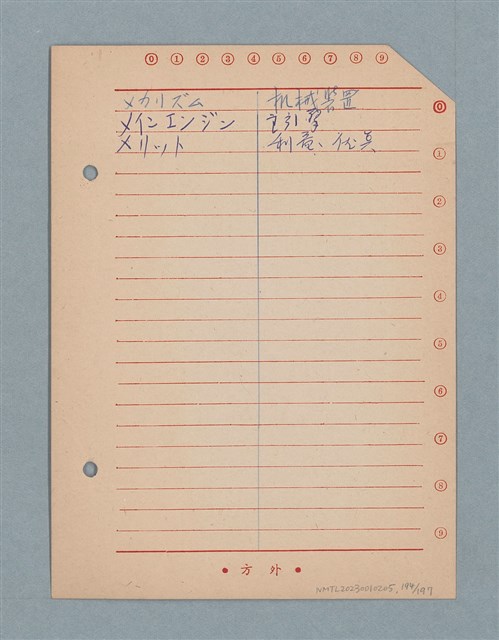 ⓪ ① ② ③ ④ ⑤ ⑥ ⑦ ⑧ ⑨
メカリズム 机械裝置
メインエンジン 主引擎
メリット 利益、优点
⓪
①
②
③
④
⑤
⑥
⑦
⑧
⑨
● 方外 ●
NMTL20230010205, 194/197